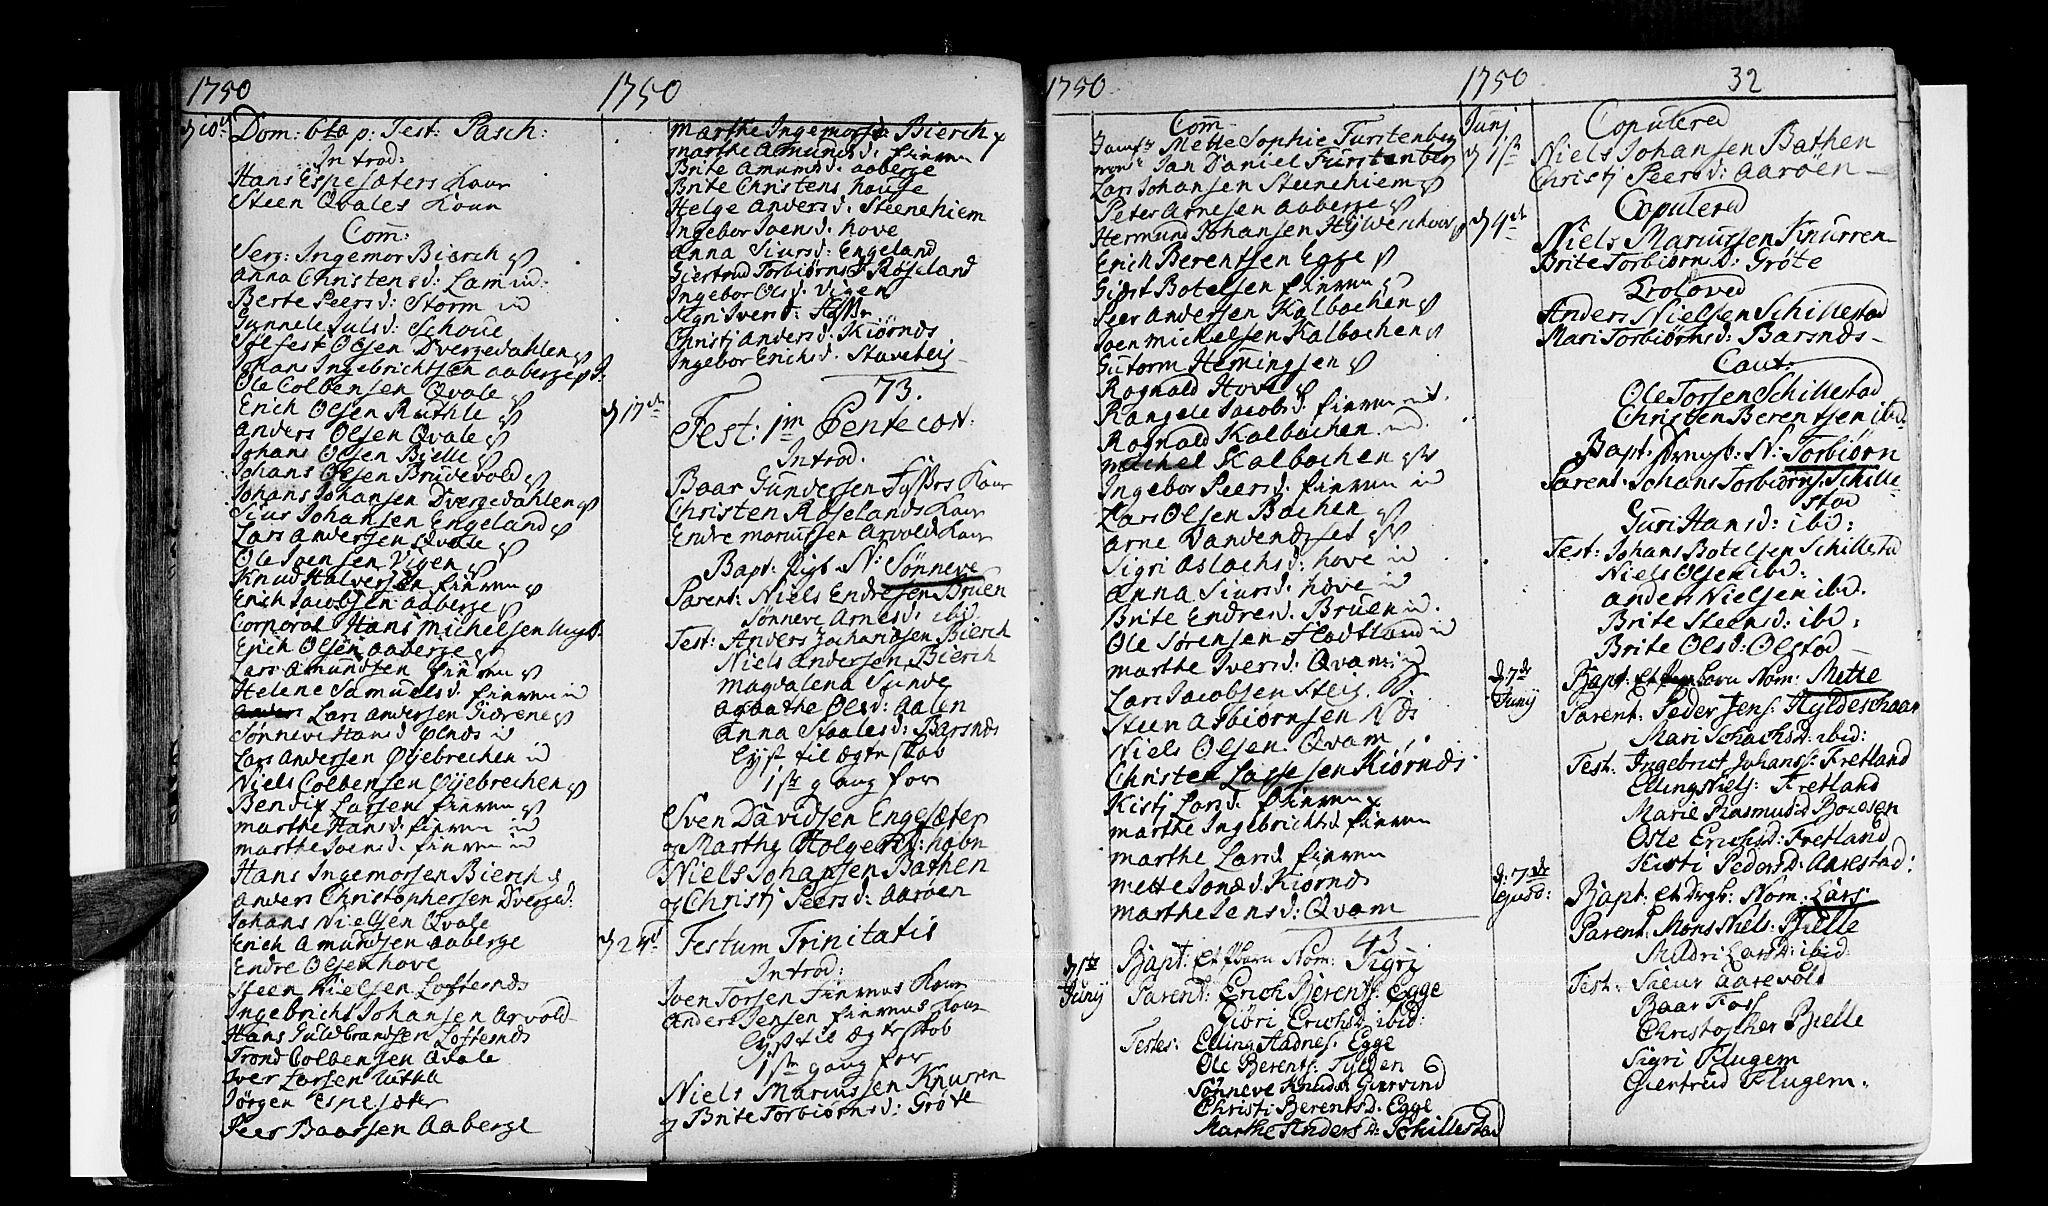 1750
1750
d 10de
Dom: 6ta p: Fest: Pasch:
Introd:
Hans Espesæters Kone
Steen Qvales Kone
Com:
Serg: Ingemor Bierch
Anna Christensd: Lam ind:
Berte Peersd: Storm ind
Gunnele Julsd: Schoue
Sjøfest Olsen Dvergedahlen
Johans Ingebrichtsen Aaberge
Ole Colbensen Qvale
Erich Olsen Ruthle
Anders Olsen Qvale
Johans Olsen Bielle
Johans Olsen Brudevold
Johans Johansen Dvergedahlen
Siur Johansen Engeland
Lars Andersen Qvale
Ole Joensen Vigen
Knud Halversen finven
Erich Jacobsen Aaberge
Corporal Hans Michelsen
Erich Olsen Aaberge
Lars Amundsen finven
Helene Samuelsd: finven ind
Lars Andersen Gierene
Sønneve Hansd
Lars Andersen Øyebrechen ind
Niels Colbensen Øyebrechen
Bendix Larsen finven
Marthe Hansd: finven ind
Marthe Joensd: finven ind
Hans Ingemorsen Bierch
Anders Christophersen Dverged:
Johans Nielsen Qvale
Erich Amundsen Aaberge
Endre Olsen hove
Steen Nielsen Loftesnds
Ingebricht Johansen Arvold
Hans Guldbrandsen Loftesnds
Trond Colbensen Qvale
Iver Larsen Ruthle
Jørgen Espesæter
Peer Baarsen Aaberge
Marthe Ingemorsd: Bierch
Marthe Amundsd: finven
Brite Amundsd: Aaberge
Brite Christens hauge
Helge Andersd: Steenehiem
Ingebor Joensd: hove
Anna Siursd: Engeland
Giertrud Torbiørnsd: Røseland
Ingebor Olsd: Vigen
Sigri Iversd:
Christj Andersd: Kiørnds
Ingebor Erichsd: Stavesteig
73.
d 17de
Fest: 1m Pentecost:
Introd.
Baar Gundersen Kone
Christen Røselands Kone
Endre Mariussen Arvolds Kone
Bapt: N: Sønneve
Parent: Niels Endresen Bruen
Sønneve Arnesd: ibid
Test: Anders Zachariesen Bierch
Niels Andersen Bierch
Magdalena Sunde
Agathe Olsd: Aalen
Anna Staalesd: Barsnds
Lyst til ægteskab
1ste gang for
Sven Davidsen Engesæter
og Marthe Holgersd: hovn
Niels Johansen Bathen
og Christj Peersd: Aarøen
d 24de
Festum Trinitatis
Introd:
Joen Torsen finvens Kone
Anders Jensen finvens Kone
Lyst til ægteskab
1ste gang for
Niels Mariussen Knurren
og Brite Torbiørnsd: Grøte
1750
1750
32
Com
Jomfr Mette Sophie Furstenberg
Jan Daniel Furstenberg
Lars Johansen Steenehiem
Peter Arnesen Aaberge
Hermund Johansen
Erich Berentsen Egge
Botelsen finven
Peer Andersen Kalbachen
Joen Michelsen Kalbachen
Gutorm Hemingsen
Rognald Hove
Rangele Jacobsd: finven
Rognald Kalbachen ind
Michel Kalbachen
Ingebor Peersd: finven ind
Lars Olsen Bachen
Arne
Sigri Aslachsd: hove ind
Anna Siursd: hove ind
Brite Endresd: Bruen ind.
Ole Sørensen Flodtland ind
Marthe Iversd: Qvam ind
Lars Jacobsen Steig
Steen Asbiørnsen Nds
Niels Olsen Qvam
Christen Lassesen Kiørnds
Kistj Larsd: finven
Marthe Ingebrichtsd: finven
Marthe Larsd: finven
Mette Jonæd: Kiørnds
Marthe Jensd: Qvam
43
d 1ste
Junij
Bapt: et Nom: Sigrj
Parent: Erich Berents: Egge
Giøri Erichsd: ibid:
Testes: Elling Aadnes: Egge
Ole Berents: Fylden
Sønneve Knudsd:
Christi Berentsd: Egge
Marthe Andersd: Schillestad
Junj
d 1ste
Copulered
Niels Johansen Bathen
Christj Peersd: Aarøen
d 4de
Copulered
Niels Mariussen Knurren
Brite Torbiørnsd: Grøte
Troloved
Anders Nielsen Schillestad
Mari Torbiørnsd: Barsnds
Caut:
Ole Torsen Schillestad
Christen Berentsen ibid
Bapt: Drengb: N: Torbiørn
Parent: Johans Torbiørns: Schille-
stad
Guri Hansd: ibid:
Test: Johans Botelsen Schillestad
Niels Olsen ibid:
Anders Nielsen ibid.
Brite Steensd: ibid:
Brite Olsd: Olstad
d. 7de
Junij
Bapt: et Nom: Mette
Parent: Peder Jens: Hyldeschaar
Mari Schachsd: ibid:
Test: Ingebrict Johans: Fretland
Elling Niels: Fretland
Marie Rasmusd:
Osle Erichsd: Fretland
Kisti Pedersd: Aarestad:
d: 7de
ejusd:
Bapt: et Drgb: Nom: Lars
Parent: Mons Niels: Bielle
Mildri Larsd: ibid:
Test: Sieur Aarevold
Baar Foss
Christopher Bielle
Sigri Flugem
Giertrud Flugem.